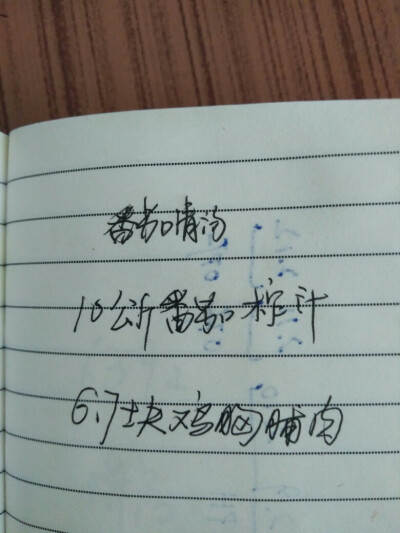 番茄清汤
10公斤番茄榨汁
6.7块鸡胸脯肉